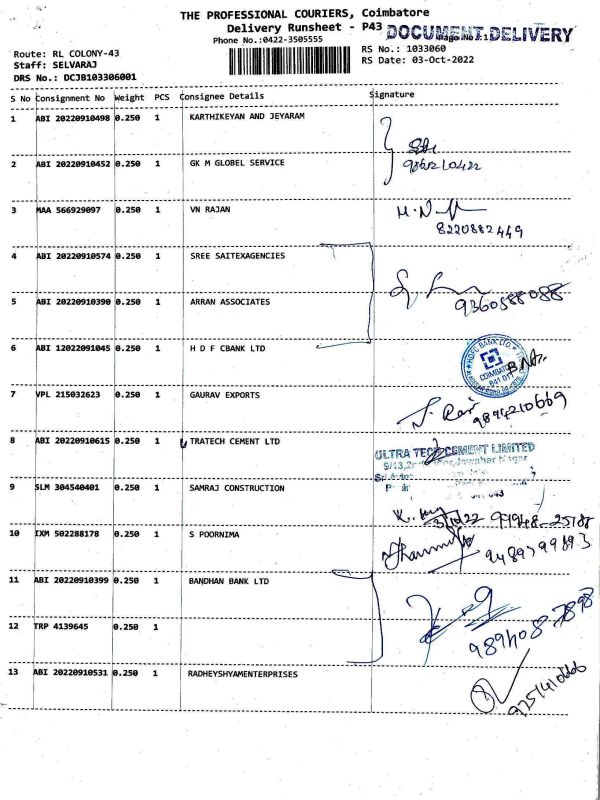 THE PROFESSIONAL COURIERS, Coimbatore
Delivery Runsheet - P43
DOCUMENT DELIVERY
Phone No.:0422-3505555
Route: RL COLONY-43
Staff: SELVARAJ
DRS No.: DCJB103306001
RS No.: 1033060
RS Date: 03-Oct-2022
S No Consignment No Weight PCS Consignee Details Signature
1 ABI 20220910498 0.250 1 KARTHIKEYAN AND JEYARAM
2 ABI 20220910452 0.250 1 GK M GLOBEL SERVICE
3 MAA 566929097 0.250 1 VN RAJAN
8220882449
4 ABI 20220910574 0.250 1 SREE SAITEXAGENCIES
9360588088
5 ABI 20220910390 0.250 1 ARRAN ASSOCIATES
6 ABI 12022091045 0.250 1 H D F CBANK LTD
HDFC BANK LTD.
COIMBATORE
641 011
7 VPL 215032623 0.250 1 GAURAV EXPORTS
9894210669
8 ABI 20220910615 0.250 1 TRATECH CEMENT LTD
ULTRA TECH CEMENT LIMITED
9 SLM 304540401 0.250 1 SAMRAJ CONSTRUCTION
3/10/22 99948-25188
10 IXM 502288178 0.250 1 S POORNIMA
11 ABI 20220910399 0.250 1 BANDHAN BANK LTD
12 TRP 4139645 0.250 1
13 ABI 20220910531 0.250 1 RADHEYSHYAMENTERPRISES